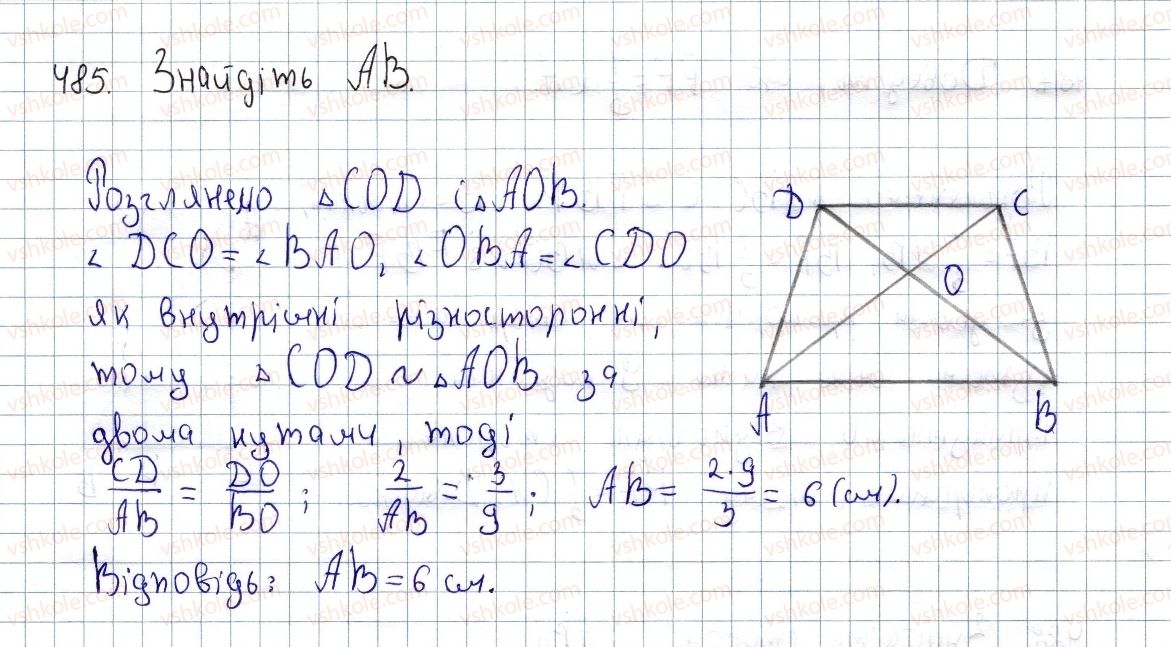 485. Знайдіть AB.
Розглянемо △COD і △AOB.
∠DCO = ∠BAO, ∠OBA = ∠CDO
як внутрішні різносторонні,
тому △COD ~ △AOB за
двома кутами, тоді
CD/AB = DO/BO; 2/AB = 3/9; AB = 2·9/3 = 6 (см).
Відповідь: AB = 6 см.
D C
O
A B
vshkole.com